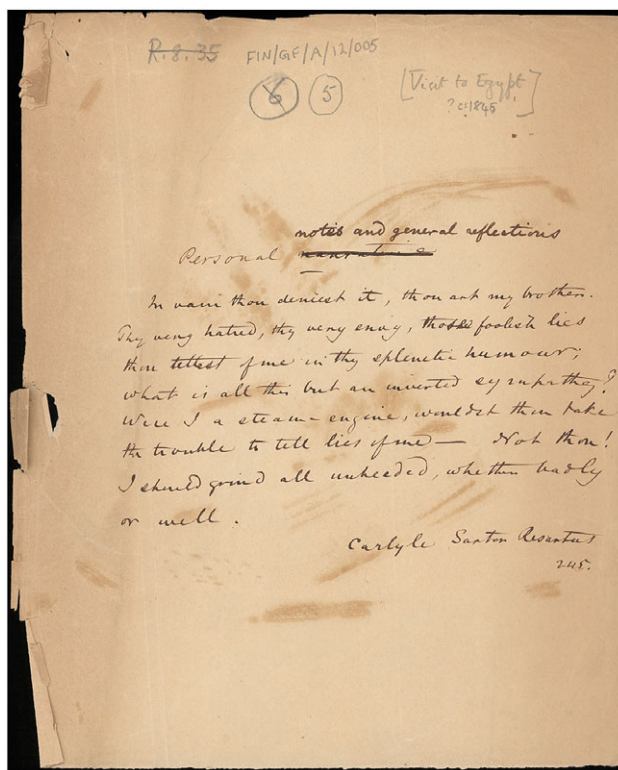 R.8.35 FIN/GF/A/12/005
6 5
[Visit to Egypt
? c.1845]
notes and general reflections
Personal narrative
In vain thou deniest it, thou art my brother.
Thy very hatred, thy very envy, those foolish lies
thou tellest of me in thy splenetic humour;
what is all this but an inverted sympathey?
Were I a steam-engine, wouldst thou take
the trouble to tell lies of me — Not thou!
I should grind all unheeded, whether badly
or well.
Carlyle Sartor Resartus
245.